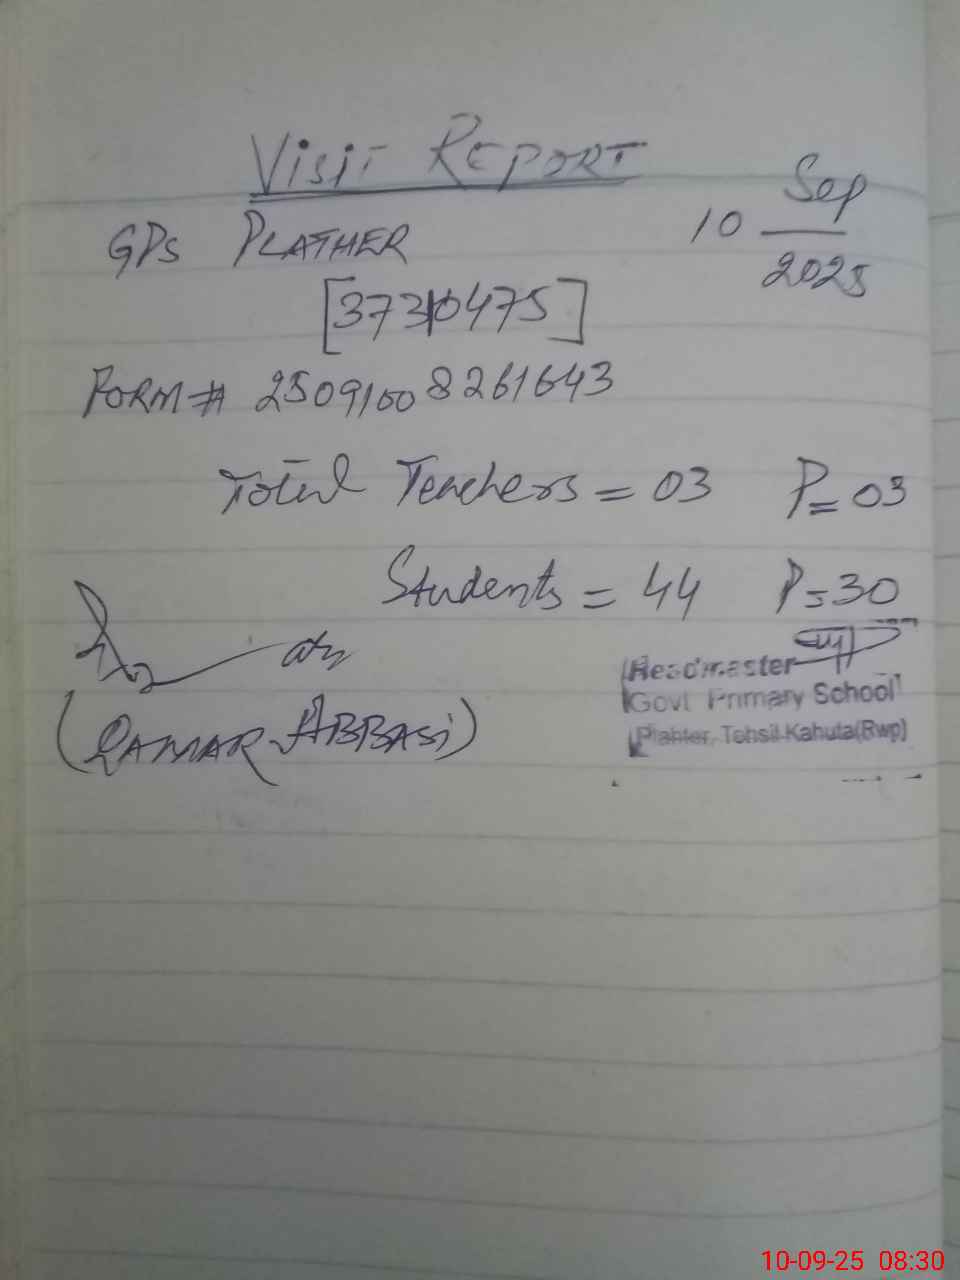 VISIT REPORT
GPS PLATHER
10 Sep
2025
[37310475]
FORM # 25091008261643
Total Teachers = 03 P = 03
Students = 44 P = 30
(QAMAR ABBASI)
Headmaster
Govt Primary School
Plahter, Tehsil Kahuta(Rwp)
10-09-25 08:30